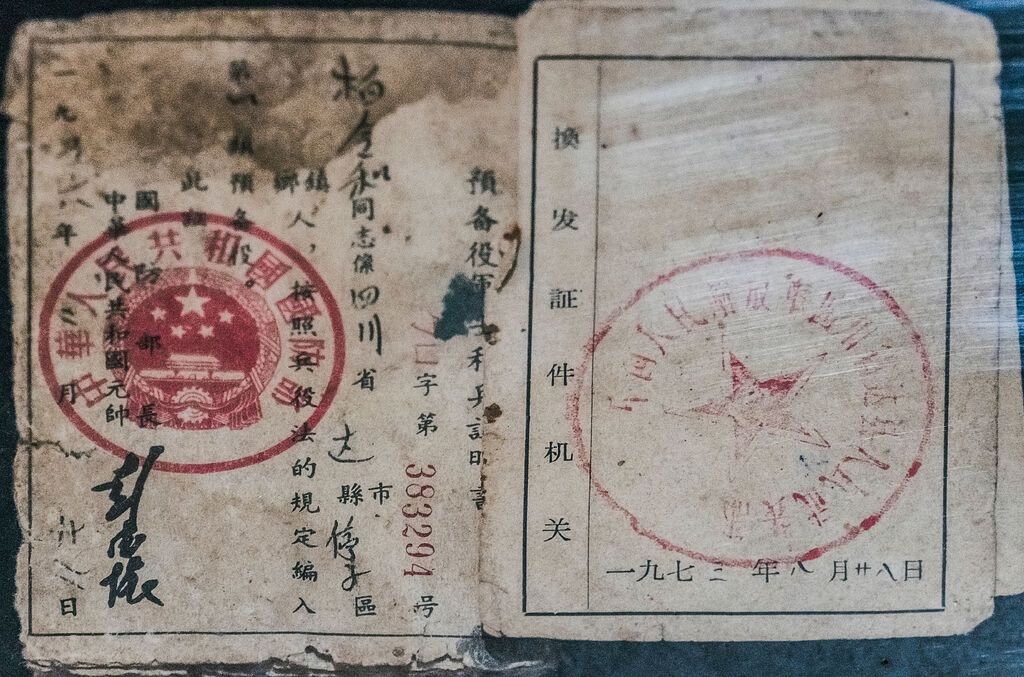 預备役軍士和兵証明書
字第383294号
同志係四川省达縣市停子區
鎮鄉人，按照兵役法的規定編入
第類預备役。
此証
國防部長
中華人民共和國元帥
彭德懷
一九五六年 月 日
中華人民共和國國防部
換发証件机关
一九七三年八月廿八日